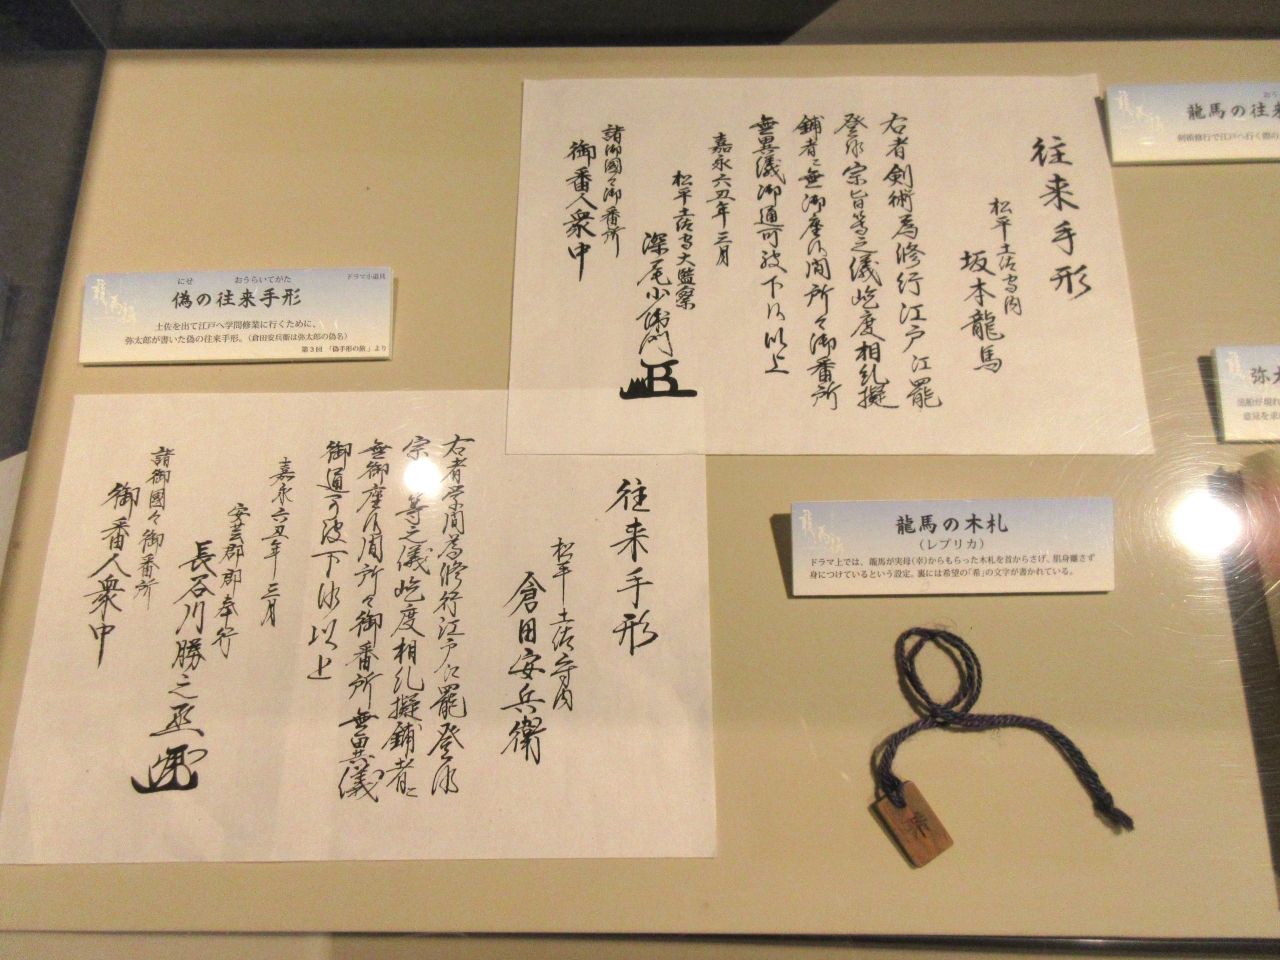 往来手形
松平土佐守内
坂本龍馬
右者剣術為修行江戸江罷
登候宗旨等之儀屹度相糺擬
鋪者ニ無御座候間所々御番所
無異儀御通可被下候以上
嘉永六丑年三月
松平土佐守大監察
深尾小衛門
諸御國々御番所
御番人衆中
龍馬の往来
剣術修行で江戸へ行く際の
にせ おうらいてがた
ドラマ小道具
偽の往来手形
土佐を出て江戸へ学問修業に行くために、
弥太郎が書いた偽の往来手形。（倉田安兵衛は弥太郎の偽名）
第3回 「偽手形の旅」より
往来手形
松平土佐守内
倉田安兵衛
右者学問為修行江戸江罷登候
宗 等之儀屹度相糺擬鋪者ニ
無御座候間所々御番所無異儀
御通可被下候以上
嘉永六丑年三月
安芸郡郡奉行
長谷川勝之丞
諸御國々御番所
御番人衆中
龍馬の木札
（レプリカ）
ドラマ上では、龍馬が実母（幸）からもらった木札を首からさげ、肌身離さず
身につけているという設定。裏には希望の「希」の文字が書かれている。
希